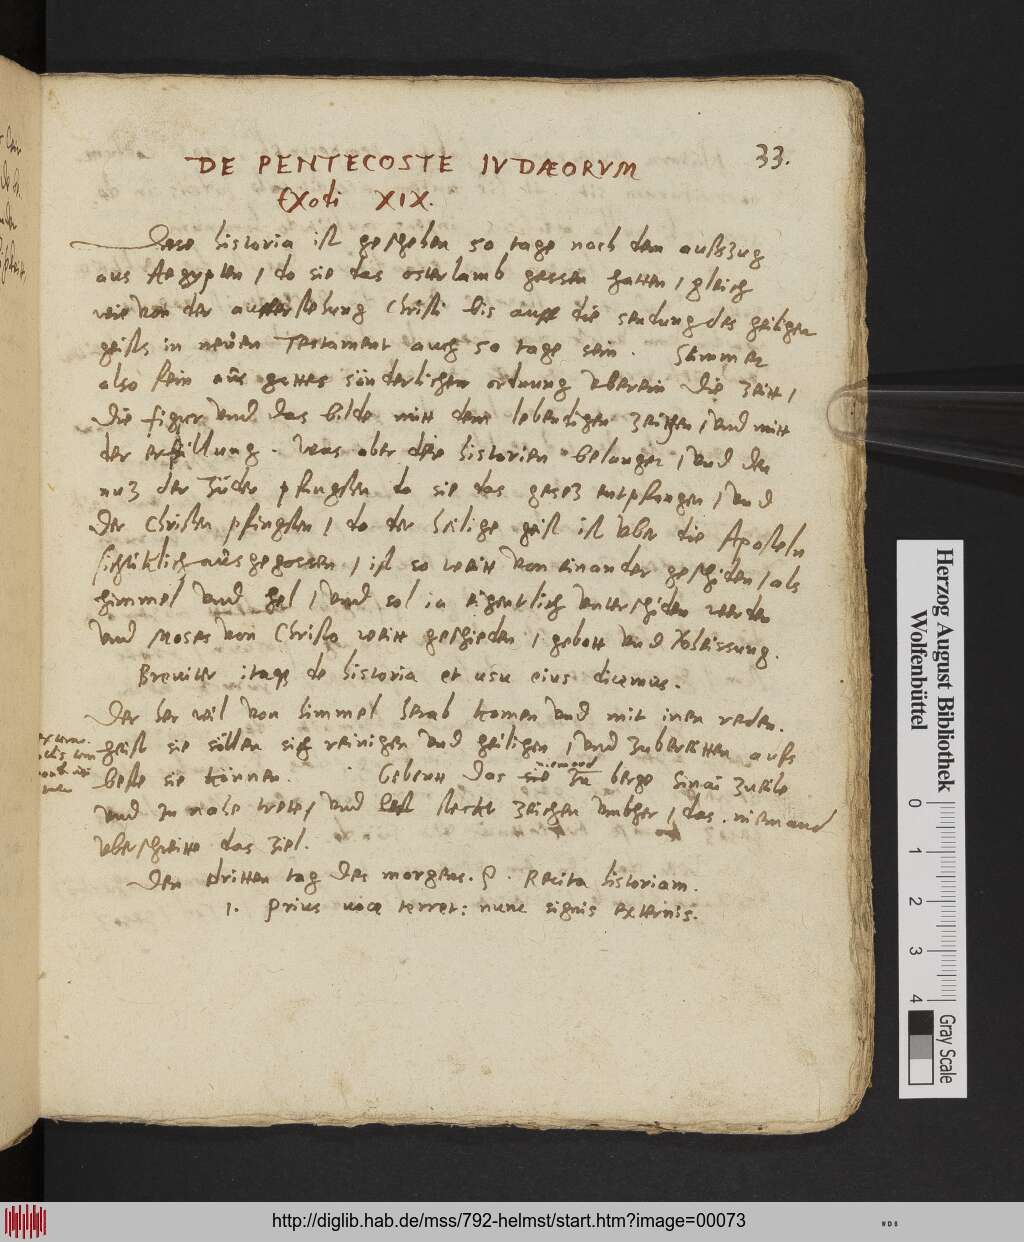 33.
DE PENTECOSTE IVDÆORVM
Exodi XIX.
Dise historia ist geschehen 50 tage nach dem außzug
aus Aegypten / do sie das osterlamb gessen hatten / gleich
wie von der aufferstehung Christi bis auff die sendung des heiligen
geists in neüen Testament auch 50 tage sein. Stimmen
also fein aus gottes sönderlichen ordnung uberein die zeitt /
Die figur und das bilde mitt dem lebendigen zeichen / und mitt
der erfillung. Was aber die historien belanget / und den
nuz der Jüden pfingsten do sie das gesez entpfangen / und
der Christen pfingsten / do der heilige geist ist uber die Aposteln
sichtiklich ausgegossen / ist so weitt von einander geschiden / als
himmel und hel / und sol ia eigentlich unterschiden werden
und Moses von Christo weitt geschieden / gebott und
Breviter itaq; de historia et usu eius dicemus.
Der her wil von himmel herab komen und mit inen reden.
heist sie söllen sich reinigen und heiligen / und zubereitten aufs
beste sie können. Gebeutt das niemand zu berge Sinai zueile
und zu nahe trete / und lest steckt zeichen umbher / das niemand
uberschreitte das ziel.
Den dritten tag des morgens. Recita historiam.
1. Prius voce terret: nunc signis externis.
Herzog August Bibliothek
Wolfenbüttel
0 1 2 3 4
Gray Scale
http://diglib.hab.de/mss/792-helmst/start.htm?image=00073